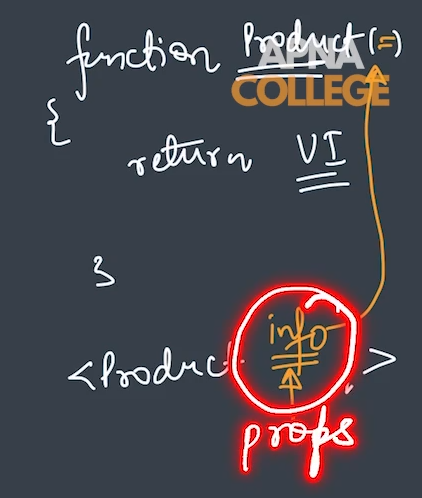 function Product (=)
APNA
COLLEGE
{
return UI
}
<Product info >
props